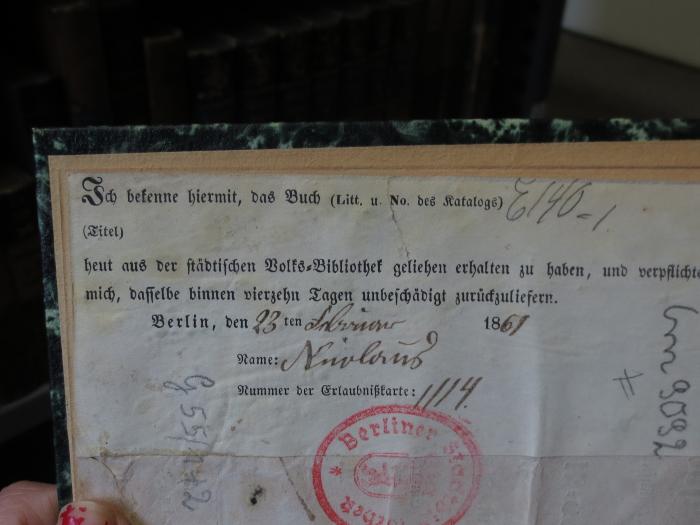 Ich bekenne hiermit, das Buch (Litt. u. No. des Katalogs) E140-1
(Titel)
heut aus der städtischen Volks-Bibliothek geliehen erhalten zu haben, und verpflichte
mich, dasselbe binnen vierzehn Tagen unbeschädigt zurückzuliefern.
Berlin, den 23 ten Februar 1861
Name: Nicolaus
Nummer der Erlaubnißkarte: 1114.
Berliner